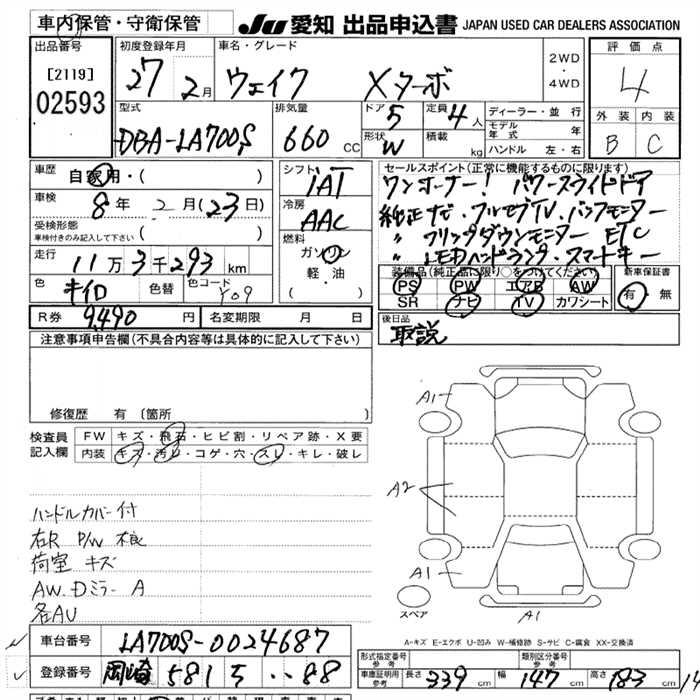 車内保管・守衛保管
JU 愛知 出品申込書 JAPAN USED CAR DEALERS ASSOCIATION
出品番号
[2119]
02593
初度登録年月
27 2月
車名・グレード
ウェイク Xターボ
2WD
・
4WD
評価点
4
外装 内装
B C
型式
DBA-LA700S
排気量
660 CC
ドア 5
定員 4人
形状 W
積載 kg
ディーラー・並行
モデル年式 年
ハンドル 左・右
車歴
自家用・( )
車検
8年 2月(23日)
受検形態
車検付きのみ記入して下さい ( )
走行
11万3千293km
色 キイロ
色替
色コード Y09
R券 9,490円
名変期限 月 日
シフト
IAT
冷房
AAC
燃料
ガソリン
軽・油
( )
セールスポイント(正常に機能するものに限ります)
ワンオーナー! パワースライドドア
純正ナビ・フルセグTV・バックモニター
〃 フリップダウンモニター ETC
〃 LEDヘッドランプ・スマートキー
装備品(純正品に限り○をつけてください)
PS PW エアB AW
SR ナビ TV カワシート
新車保証書
有・無
後日品
取説
注意事項申告欄(不具合内容等は具体的に記入して下さい)
修復歴 有 〔箇所 〕
検査員
記入欄
FW キズ・飛石・ヒビ割・リペア跡・X要
内装 キズ・汚レ・コゲ・穴・スレ・キレ・破レ
ハンドルカバー付
右R P/W 不良
荷室 キズ
AW.Dミラー A
各AU
A1
A2
A1
A1
スペア
A-キズ E-エクボ U-凹み W-補修跡 S-サビ C-腐食 XX-交換済
車台番号 LA700S-0024687
登録番号 岡崎 581 ち ・・88
形式指定番号
参考
類別区分番号
参考
車庫証明用
参考
長さ 339 cm 幅 147 cm 高さ 183 cm